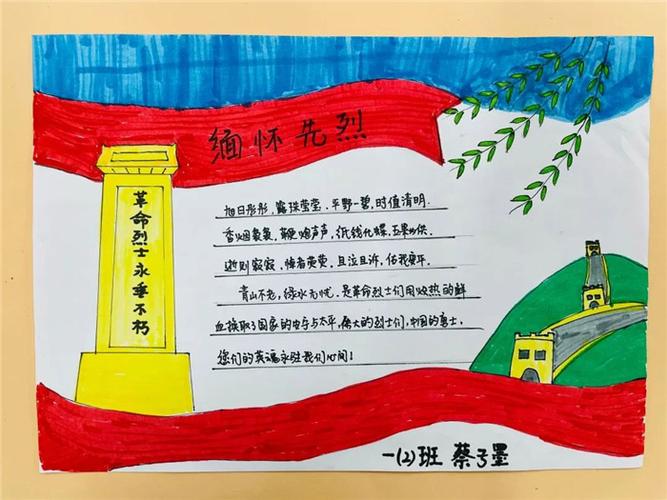 缅怀先烈
革命烈士永垂不朽
旭日彤彤,露珠莹莹,平野一碧,时值清明.
香烟袅袅,鞭炮声声,纸钱化蝶,
逝则寂寂,悼者茕茕,且泣且诉,佑我
青山不老,绿水无忧,是革命烈士们用炽热的鲜
血换取了国家的安宁与太平,伟大的烈士们,中国的勇士,
您们的英魂永驻我们心间!
一(2)班 蔡子墨